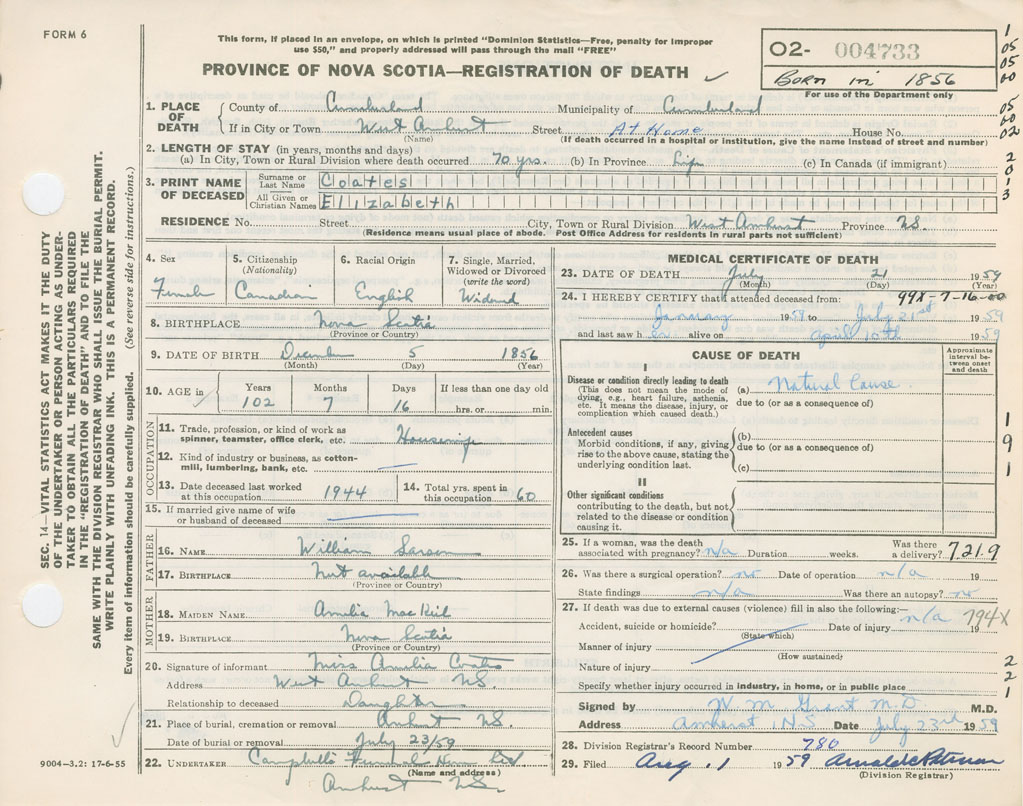 FORM 6
This form, if placed in an envelope, on which is printed "Dominion Statistics—Free, penalty for improper
use $50," and properly addressed will pass through the mail "FREE"
PROVINCE OF NOVA SCOTIA—REGISTRATION OF DEATH ✓
02- 004733
Born in 1856
For use of the Department only
1 05 05 00 05 00 02 2 0 1 3
1. PLACE OF DEATH { County of Cumberland Municipality of Cumberland
If in City or Town West Amherst Street At Home House No.
(Name) (If death occurred in a hospital or institution, give the name instead of street and number)
2. LENGTH OF STAY (in years, months and days)
(a) In City, Town or Rural Division where death occurred 70 yrs. (b) In Province Life (c) In Canada (if immigrant)
3. PRINT NAME OF DECEASED Surname or Last Name Coates
All Given or Christian Names Elizabeth
RESIDENCE No. Street City, Town or Rural Division West Amherst Province NS.
(Residence means usual place of abode. Post Office Address for residents in rural parts not sufficient)
4. Sex Female
5. Citizenship (Nationality) Canadian
6. Racial Origin English
7. Single, Married, Widowed or Divorced (write the word) Widowed
8. BIRTHPLACE Nova Scotia
(Province or Country)
9. DATE OF BIRTH December 5 1856
(Month) (Day) (Year)
10. AGE in Years 102 Months 7 Days 16 If less than one day old hrs. or min.
OCCUPATION
11. Trade, profession, or kind of work as spinner, teamster, office clerk, etc. Housewife
12. Kind of industry or business, as cotton-mill, lumbering, bank, etc. —
13. Date deceased last worked at this occupation 1944
14. Total yrs. spent in this occupation 60
15. If married give name of wife or husband of deceased —
FATHER
16. NAME William
17. BIRTHPLACE Not available
(Province or Country)
MOTHER
18. MAIDEN NAME Amelia
19. BIRTHPLACE Nova Scotia
(Province or Country)
20. Signature of informant Miss Amelia Coates
Address West Amherst NS.
Relationship to deceased Daughter
21. Place of burial, cremation or removal Amherst NS.
Date of burial or removal July 23/59
22. UNDERTAKER Campbells Funeral Home Ltd
(Name and address)
Amherst NS.
MEDICAL CERTIFICATE OF DEATH
23. DATE OF DEATH July 21 1959
(Month) (Day) (Year)
24. I HEREBY CERTIFY that I attended deceased from: 99X-7-16-00
January 1959 to July 21st 1959
and last saw her alive on April 10th 1959
CAUSE OF DEATH
Approximate interval between onset and death
I
Disease or condition directly leading to death (a) Natural Cause.
(This does not mean the mode of dying, e.g., heart failure, asthenia, etc. It means the disease, injury, or complication which caused death.)
due to (or as a consequence of)
Antecedent causes
Morbid conditions, if any, giving rise to the above cause, stating the underlying condition last.
(b)
due to (or as a consequence of)
(c)
II
Other significant conditions
contributing to the death, but not related to the disease or condition causing it.
1 9 1
25. If a woman, was the death associated with pregnancy? n/a Duration weeks. Was there a delivery? 721.9
26. Was there a surgical operation? no Date of operation n/a 19
State findings n/a Was there an autopsy? no
27. If death was due to external causes (violence) fill in also the following:—
n/a 794X
Accident, suicide or homicide? Date of injury 19
(State which)
Manner of injury
(How sustained)
Nature of injury
Specify whether injury occurred in industry, in home, or in public place
2 2 1
Signed by W. M. Grant M.D M.D.
Address Amherst, N.S Date July 23rd 1959
28. Division Registrar's Record Number 786
29. Filed Aug. 1 1959
(Division Registrar)
SEC. 14—VITAL STATISTICS ACT MAKES IT THE DUTY
OF THE UNDERTAKER OR PERSON ACTING AS UNDER-
TAKER TO OBTAIN ALL THE PARTICULARS REQUIRED
IN THE "REGISTRATION OF DEATH" AND TO FILE THE
SAME WITH THE DIVISION REGISTRAR WHO SHALL ISSUE THE BURIAL PERMIT.
WRITE PLAINLY WITH UNFADING INK. THIS IS A PERMANENT RECORD.
Every item of information should be carefully supplied. (See reverse side for instructions.)
9004-3.2: 17-6-55